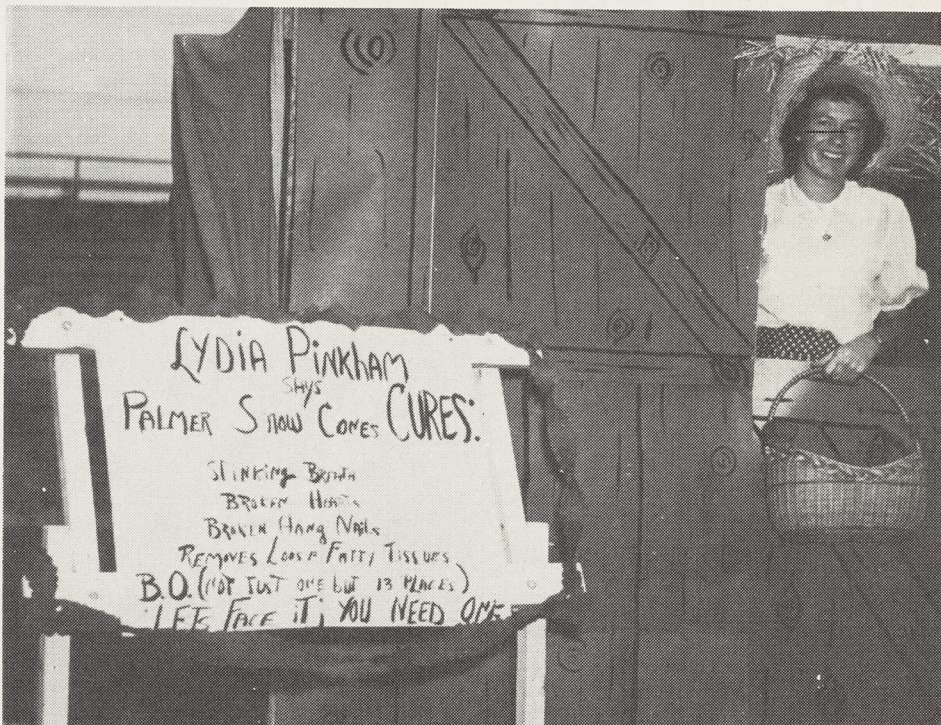 LYDIA PINKHAM
SAYS
PALMER SNOW CONES CURES:
STINKING BREATH
BROKEN HEARTS
BROKEN HANG NAILS
REMOVES LOOSE FATTY TISSUES
B.O. (NOT JUST ONE BUT 13 PLACES)
LETS FACE IT; YOU NEED ONE